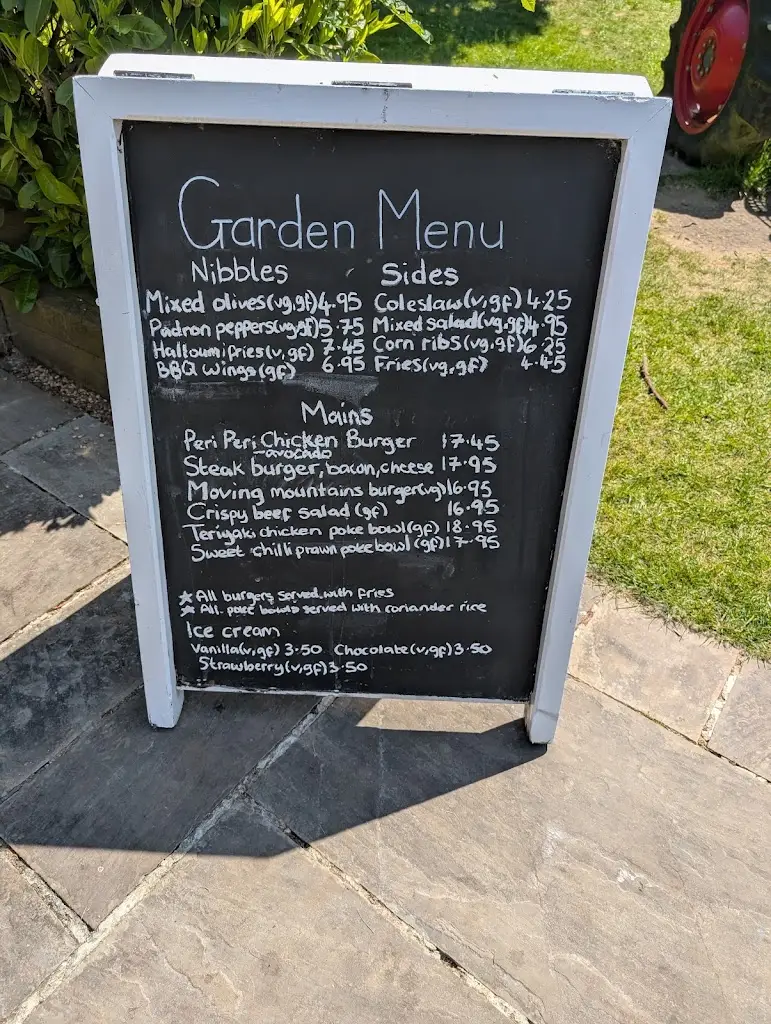 Garden Menu
Nibbles
Mixed olives(vg,gf) 4.95
Padron peppers(vg,gf) 5.75
Halloumi fries(v,gf) 7.45
BBQ wings(gf) 6.95
Sides
Coleslaw(v,gf) 4.25
Mixed salad(vg,gf) 4.95
Corn ribs(vg,gf) 6.25
Fries(vg,gf) 4.45
Mains
Peri Peri Chicken Burger 17.45
-avocado
Steak burger, bacon, cheese 17.95
Moving mountains burger(vg) 16.95
Crispy beef salad (gf) 16.95
Teriyaki chicken poke bowl(gf) 18.95
Sweet chilli prawn poke bowl (gf) 17.95
★ All burgers served with fries
★ All poke bowls served with coriander rice
Ice cream
Vanilla(v,gf) 3.50 Chocolate(v,gf) 3.50
Strawberry(v,gf) 3.50